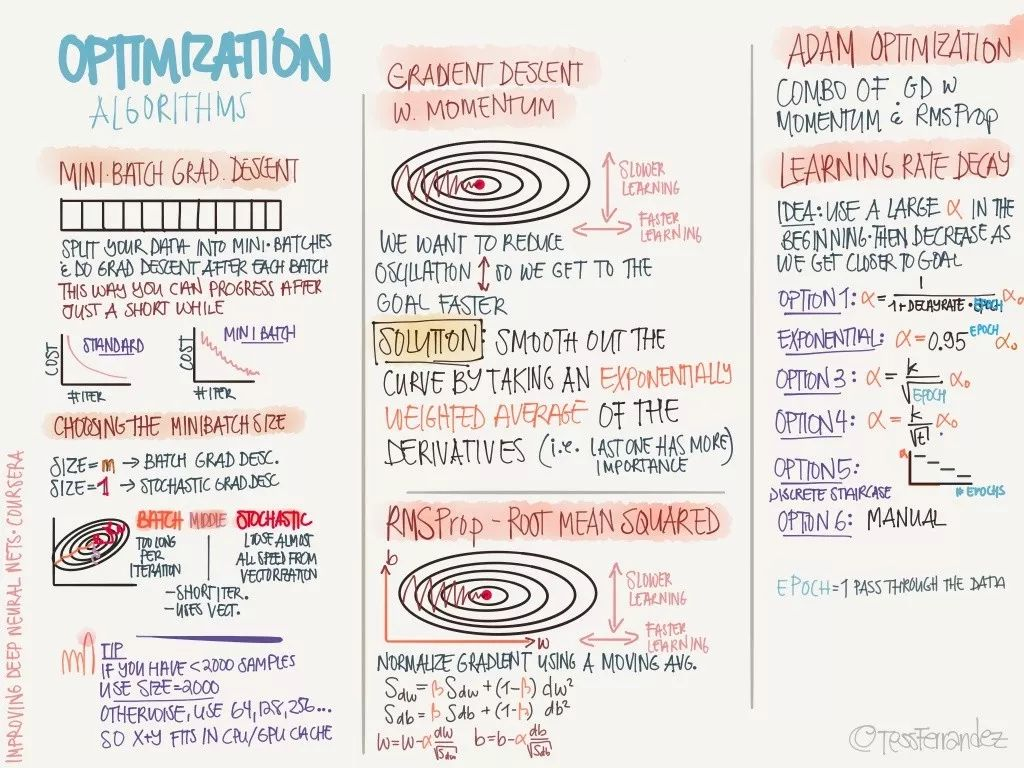 OPTIMIZATION
ALGORITHMS
MINI-BATCH GRAD. DESCENT
SPLIT YOUR DATA INTO MINI-BATCHES
& DO GRAD DESCENT AFTER EACH BATCH
THIS WAY YOU CAN PROGRESS AFTER
JUST A SHORT WHILE
COST
STANDARD
# ITER
COST
MINI BATCH
# ITER
CHOOSING THE MINIBATCH SIZE
SIZE=m → BATCH GRAD DESC.
SIZE=1 → STOCHASTIC GRAD DESC
BATCH
TOO LONG
PER
ITERATION
MIDDLE
-SHORT ITER.
-USES VECT.
STOCHASTIC
LOOSE ALMOST
ALL SPEED FROM
VECTORIZATION
TIP
IF YOU HAVE <2000 SAMPLES
USE SIZE=2000
OTHERWISE, USE 64,128,256...
SO X+Y FITS IN CPU/GPU CACHE
IMPROVING DEEP NEURAL NETS · COURSERA
GRADIENT DESCENT
W. MOMENTUM
SLOWER
LEARNING
FASTER
LEARNING
WE WANT TO REDUCE
OSCILLATION ↕ SO WE GET TO THE
GOAL FASTER
SOLUTION: SMOOTH OUT THE
CURVE BY TAKING AN EXPONENTIALLY
WEIGHTED AVERAGE OF THE
DERIVATIVES (i.e. LAST ONE HAS MORE)
IMPORTANCE
RMSProp - ROOT MEAN SQUARED
b
w
SLOWER
LEARNING
FASTER
LEARNING
NORMALIZE GRADIENT USING A MOVING AVG.
S_dw = β S_dw + (1-β) dw²
S_db = β S_db + (1-β) db²
w=w-α dw/√S_dw b=b-α db/√S_db
ADAM OPTIMIZATION
COMBO OF GD W
MOMENTUM & RMSProp
LEARNING RATE DECAY
IDEA: USE A LARGE α IN THE
BEGINNING. THEN DECREASE AS
WE GET CLOSER TO GOAL
OPTION 1: α = 1/(1+DECAYRATE·EPOCH) α₀
EXPONENTIAL: α=0.95^EPOCH α₀
OPTION 3: α = k/√EPOCH α₀
OPTION 4: α = k/√t α₀
OPTION 5:
DISCRETE STAIRCASE
α
# EPOCHS
OPTION 6: MANUAL
EPOCH = 1 PASS THROUGH THE DATA
@TessFerrandez